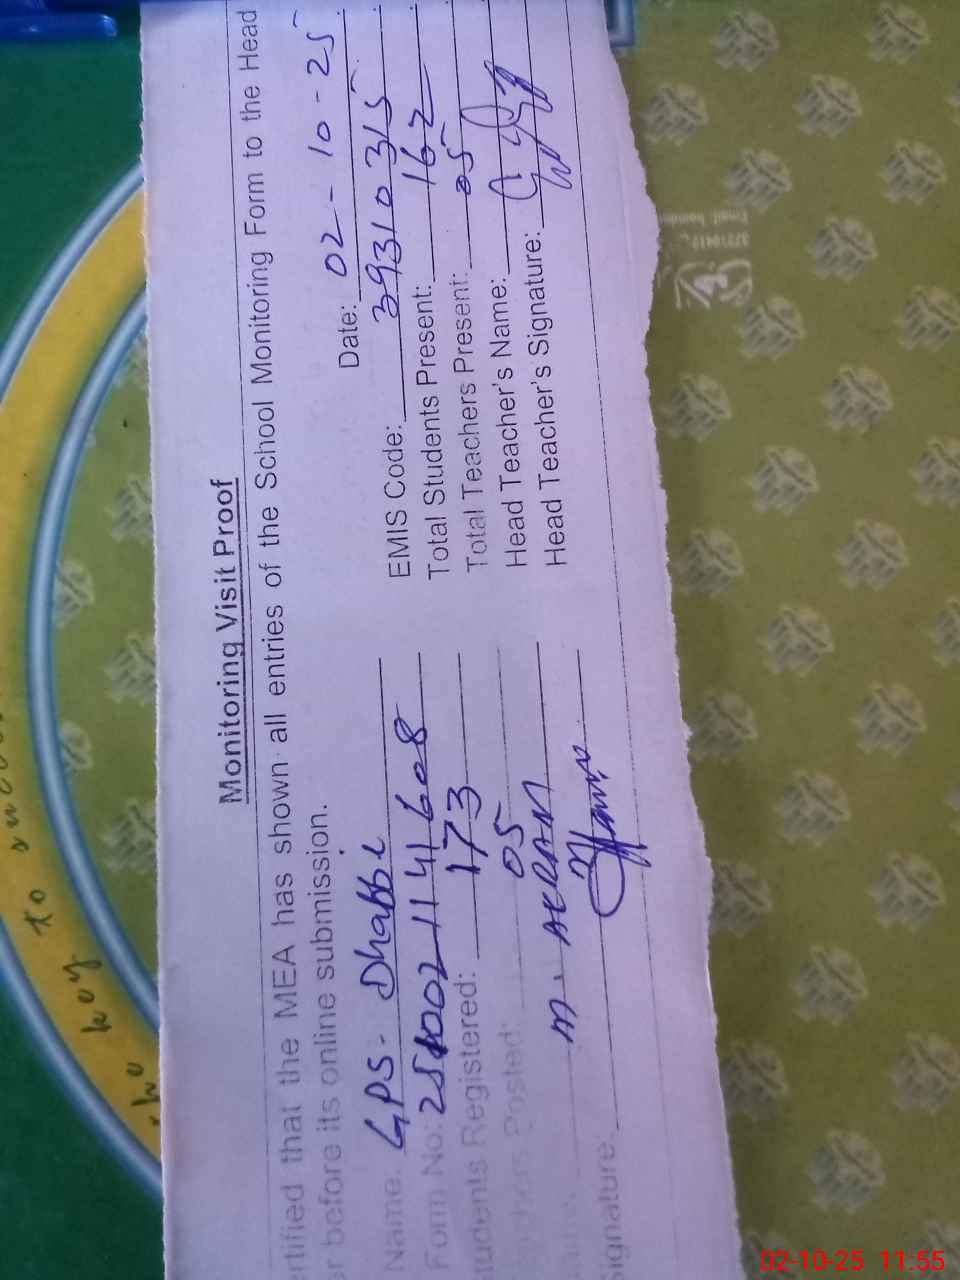 Monitoring Visit Proof
ertified that the MEA has shown all entries of the School Monitoring Form to the Head
r before its online submission.
Date: 02-10-25
Name: GPS- Dhabbi EMIS Code: 39310315
Form No: 2510021141608 Total Students Present: 162
tudents Registered: 173 Total Teachers Present: 05
Posted: 05 Head Teacher's Name:
M. AKRAM Head Teacher's Signature:
ignature:
the key to succ
02-10-25 11:55